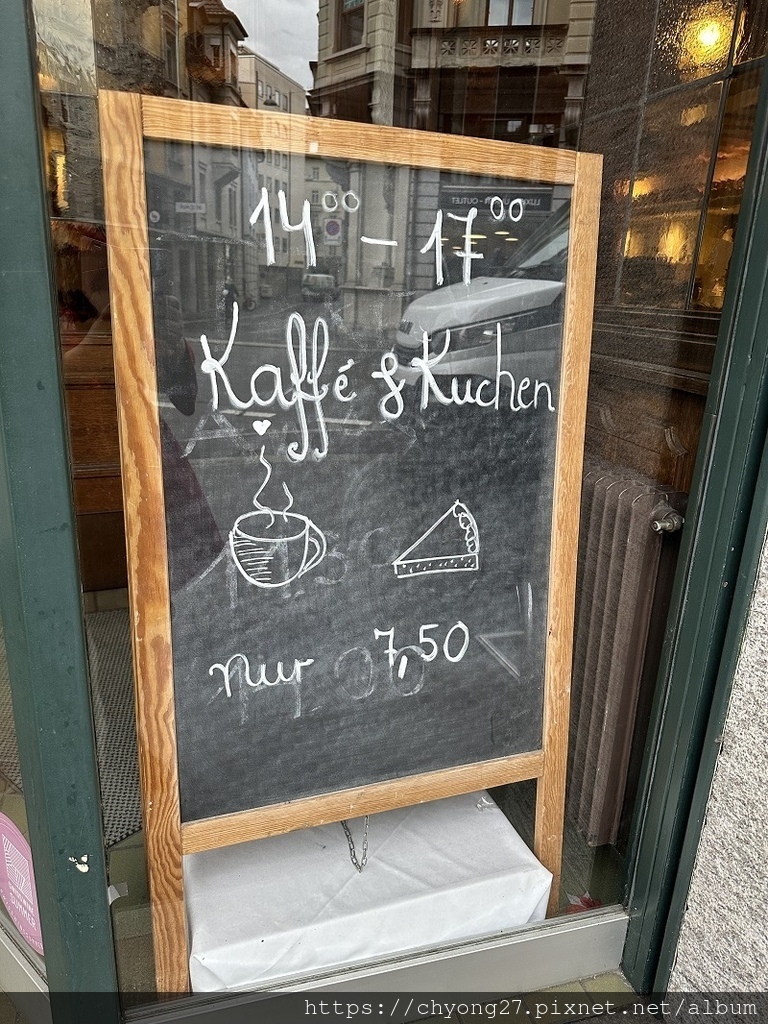 14⁰⁰ - 17⁰⁰
Kaffé & Kuchen
nur 7,50
LUXURY-OUTLET
https://chyong27.pixnet.net/album